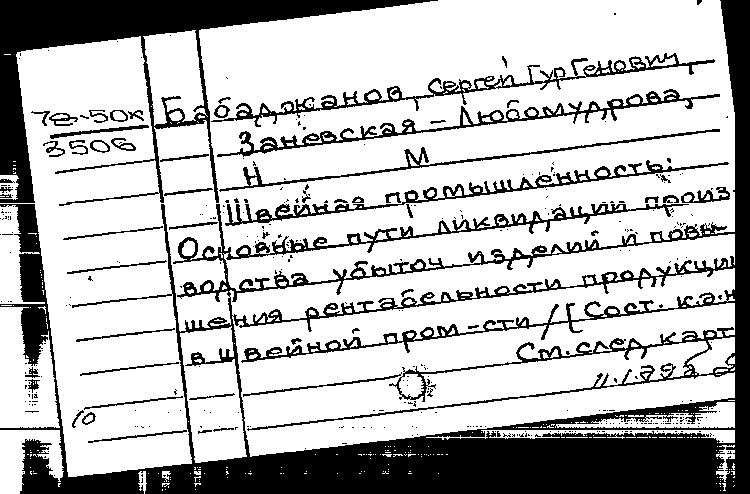 78-50к Бабаджанов, Сергей Гургенович,
3506 Заневская - Любомудрова,
Н М
Швейная промышленность:
Основные пути ликвидации произ-
водства убыточ изделий и повы-
шения рентабельности продукции
в швейной пром-сти / [Сост. к.э.н
См. след. карт
10